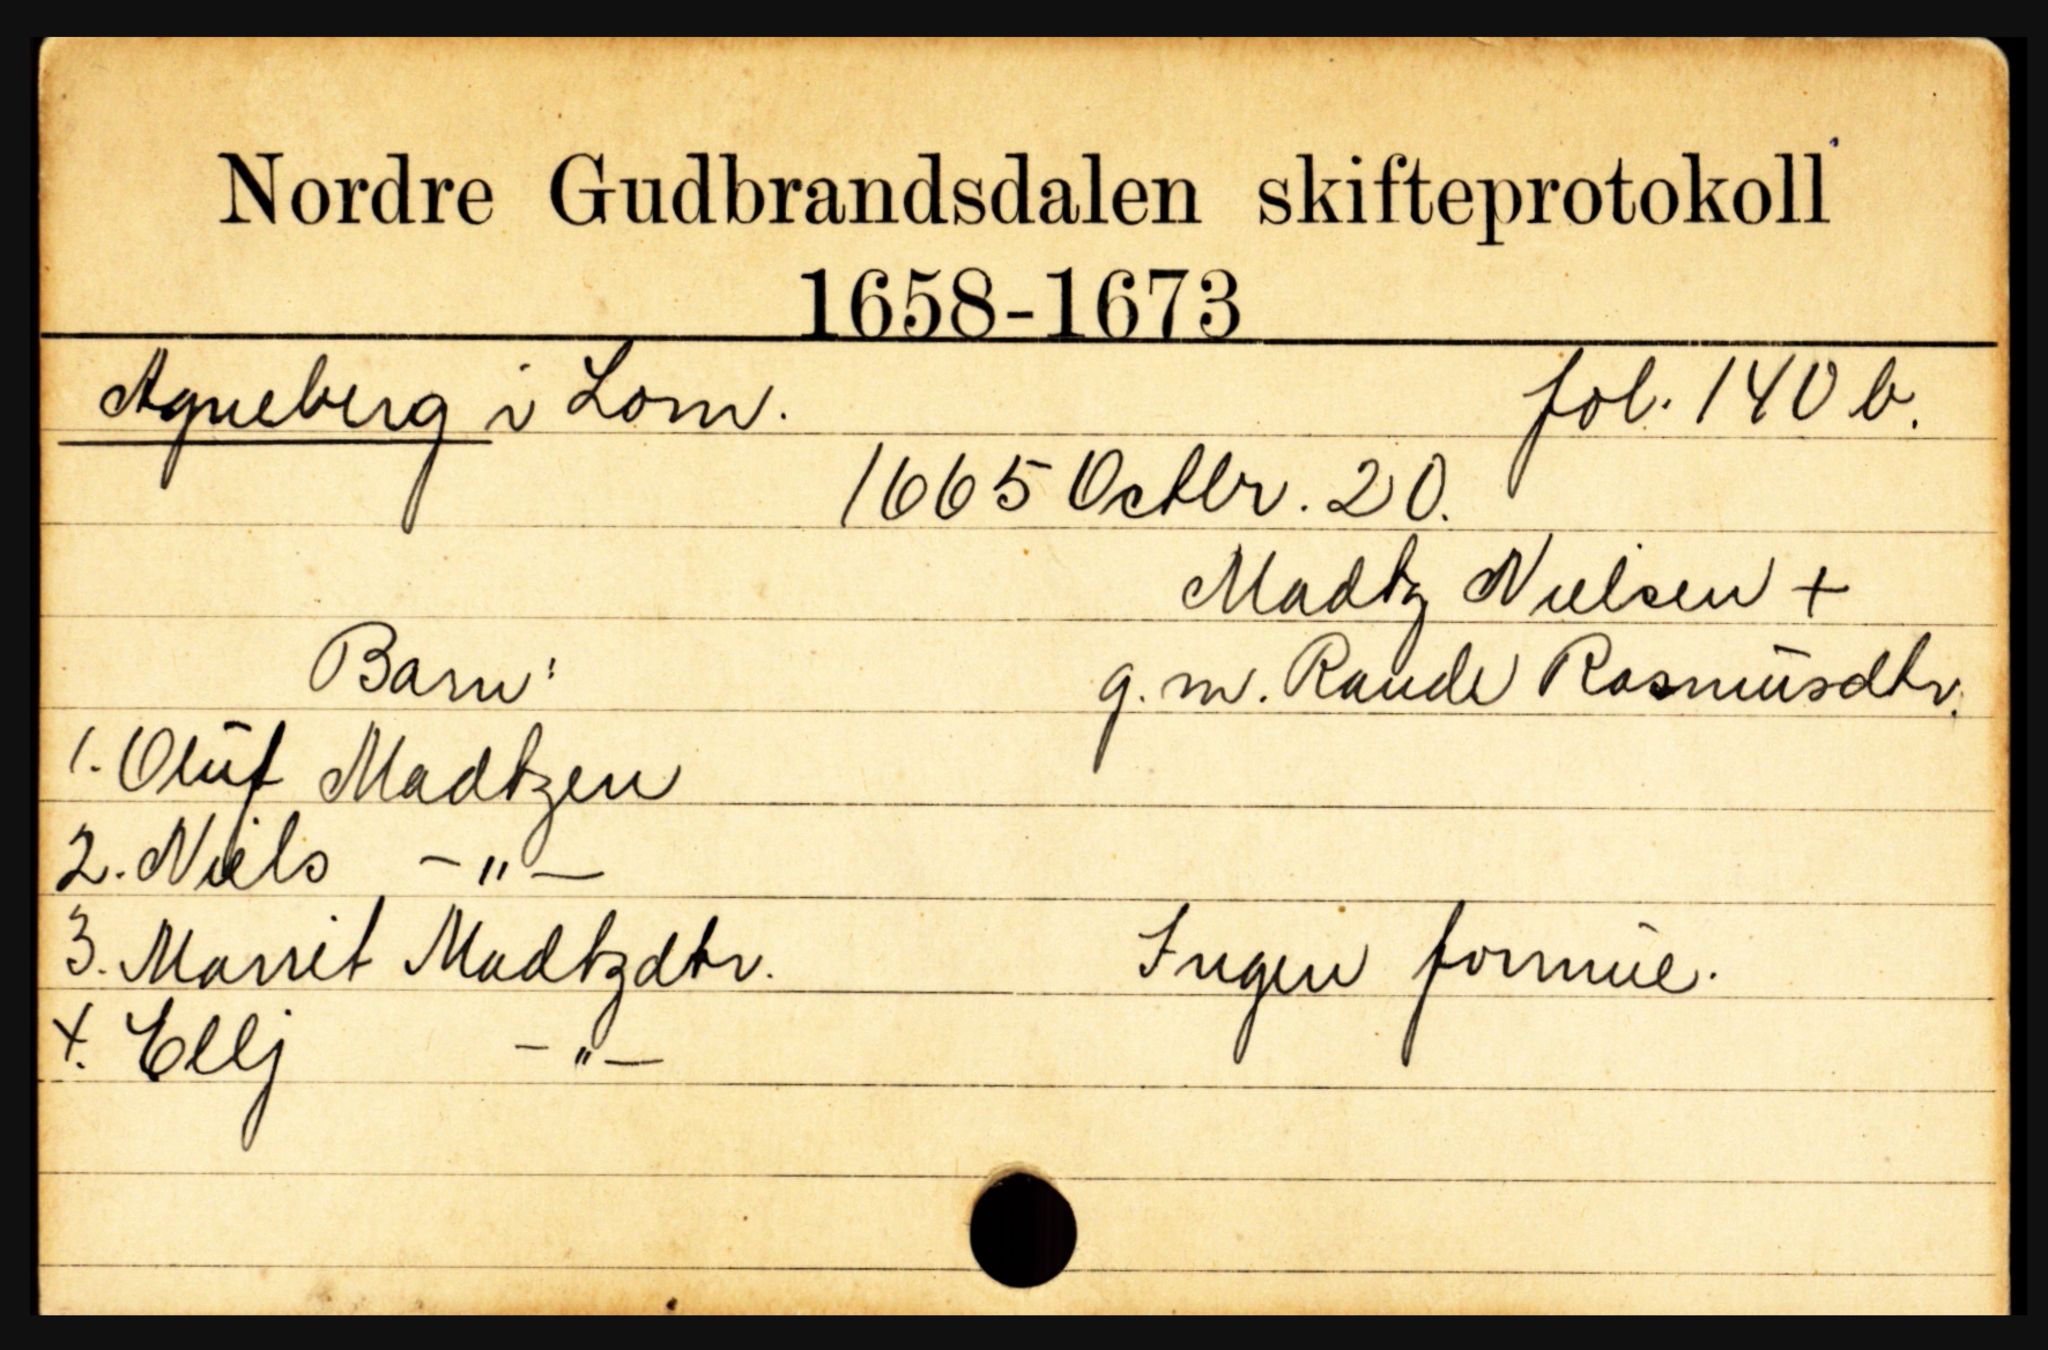 Nordre Gudbrandsdalen skifteprotokoll
1658-1673
Agneberg i Lom. fol. 140 b.
1665 Octbr. 20.
Madtz Nielsen +
Barn: g. m. Rande Rasmusdtr.
1. Oluf Madtzen
2. Niels - " -
3. Marrit Madtzdtr. Ingen formue.
4. Ellj - " -